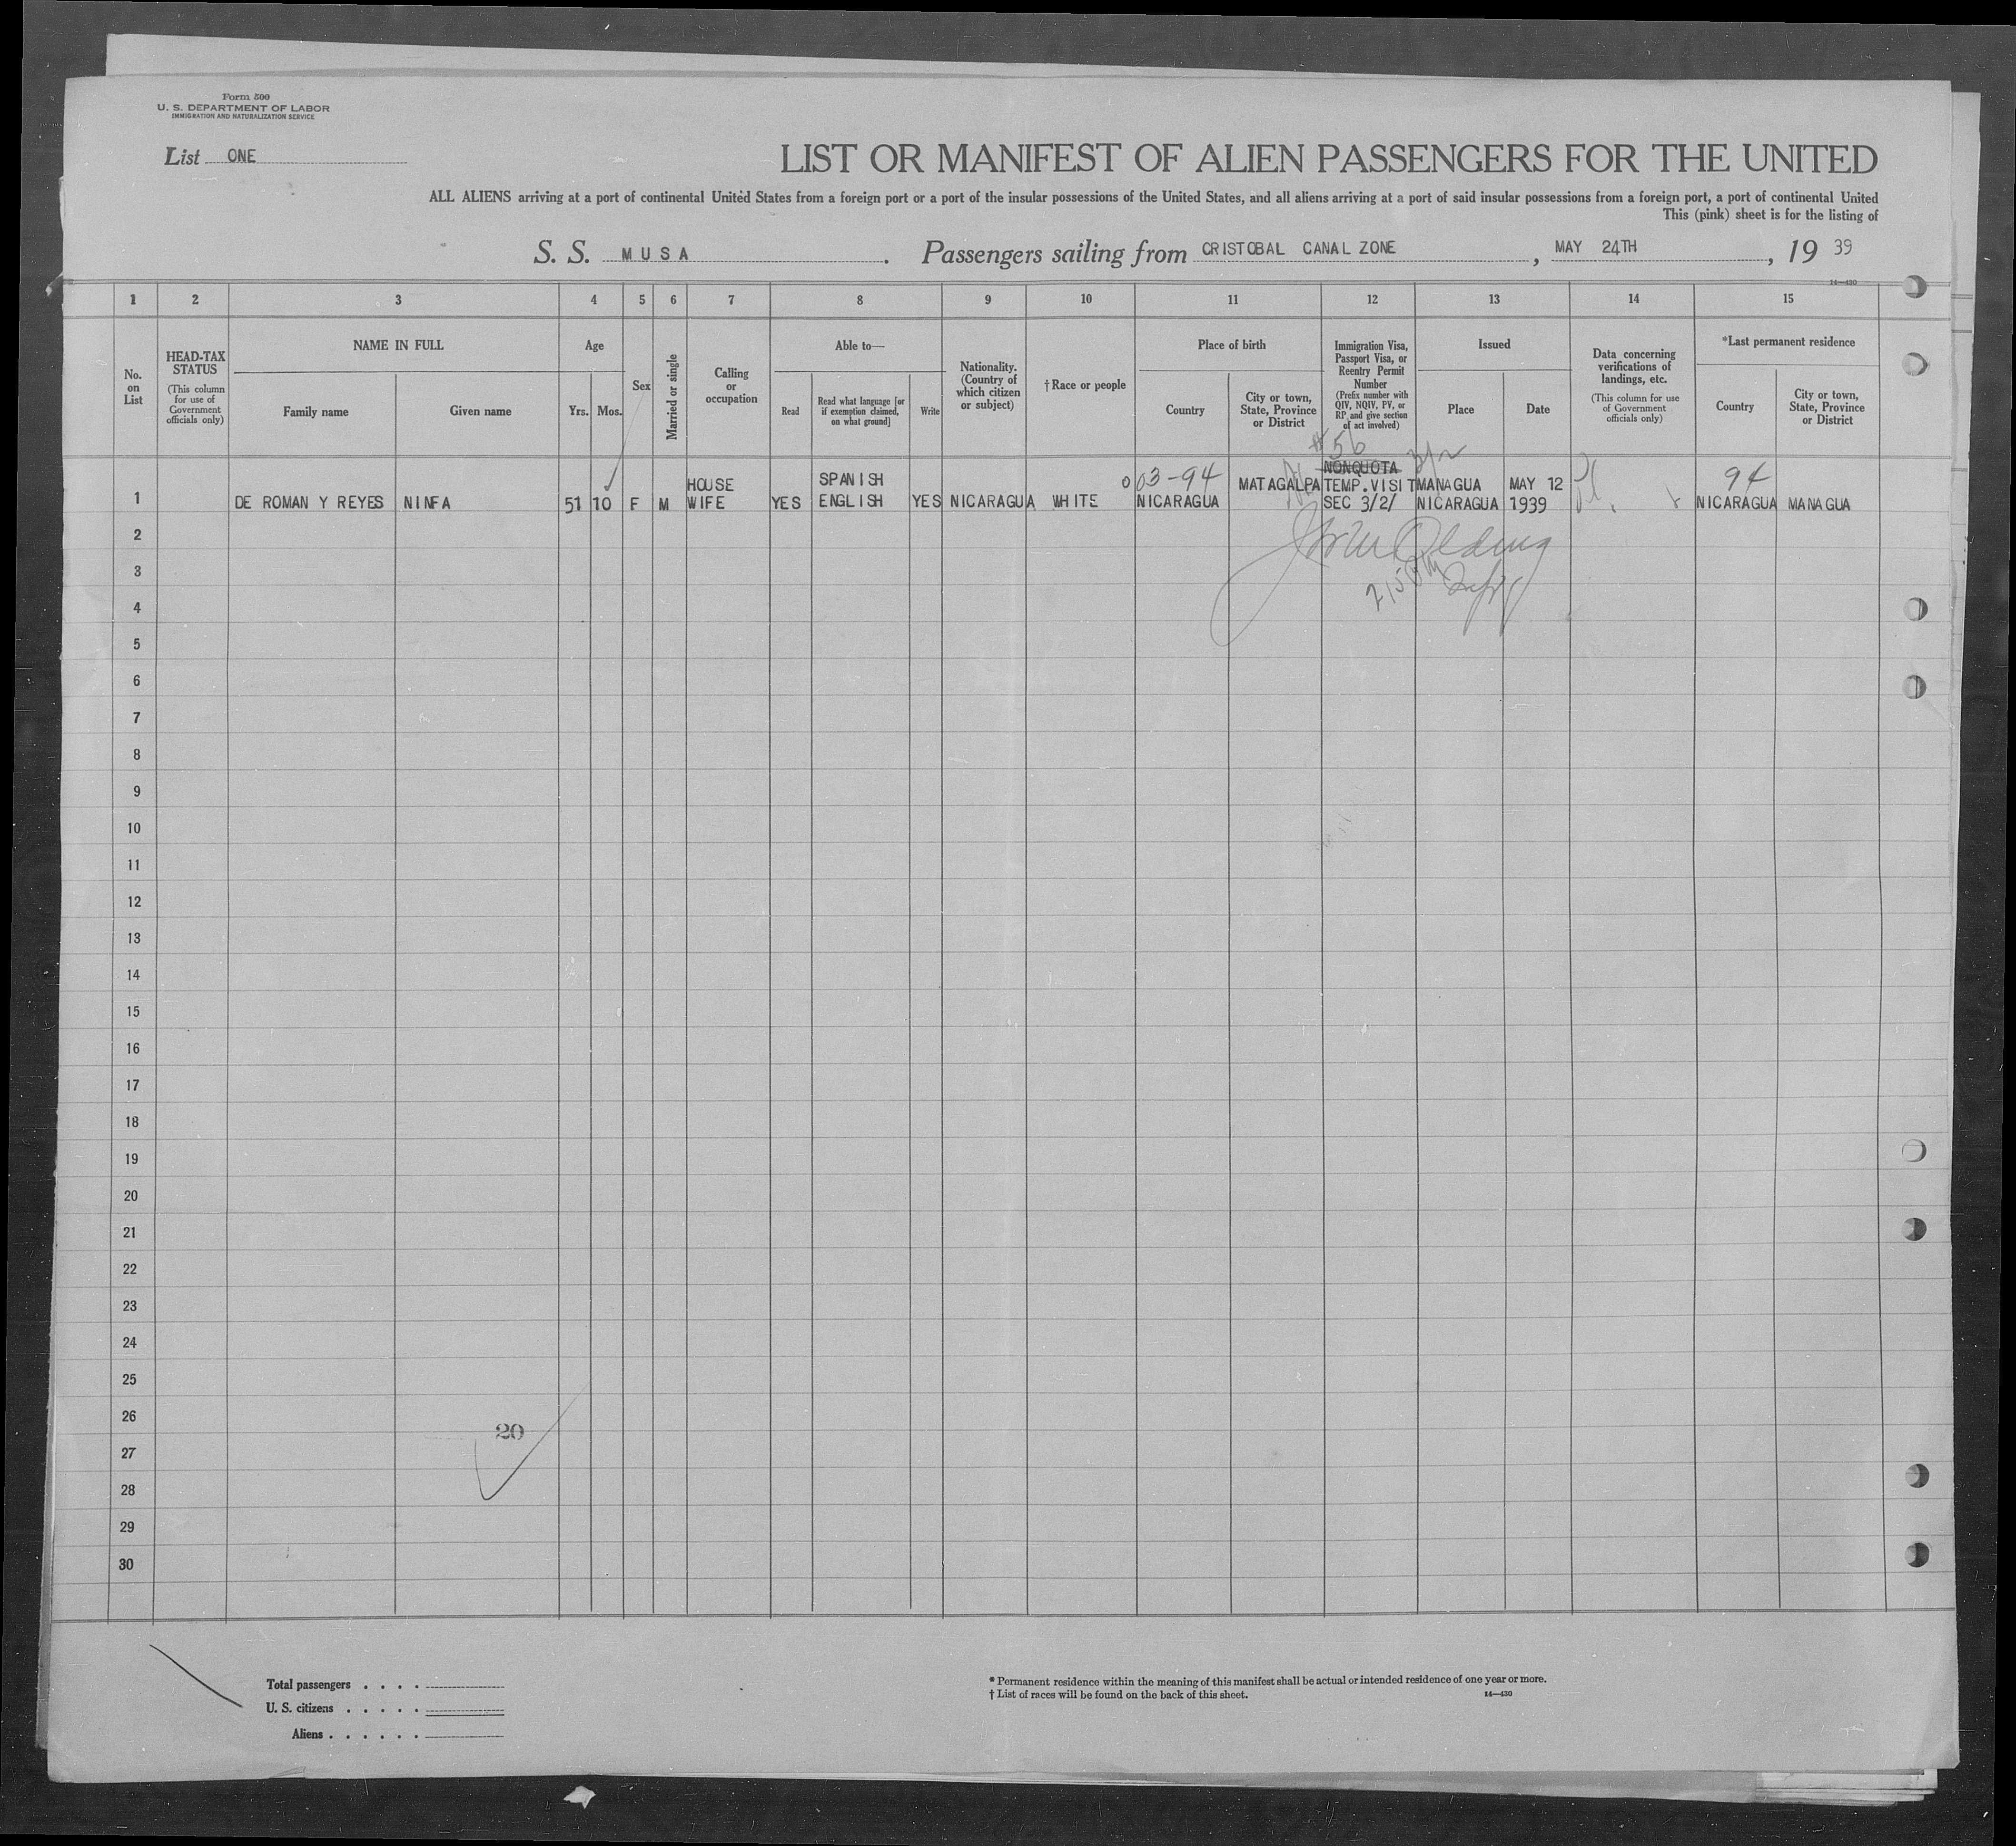 Form 500
U. S. DEPARTMENT OF LABOR
IMMIGRATION AND NATURALIZATION SERVICE
List ONE
LIST OR MANIFEST OF ALIEN PASSENGERS FOR THE UNITED
ALL ALIENS arriving at a port of continental United States from a foreign port or a port of the insular possessions of the United States, and all aliens arriving at a port of said insular possessions from a foreign port, a port of continental United
This (pink) sheet is for the listing of
S. S. MUSA . Passengers sailing from CRISTOBAL CANAL ZONE , MAY 24TH , 19 39
14—430
1 2 3 4 5 6 7 8 9 10 11 12 13 14 15
No. on List
HEAD-TAX STATUS
(This column for use of Government officials only)
NAME IN FULL
Family name
Given name
Age
Yrs.
Mos.
Sex
Married or single
Calling or occupation
Able to—
Read
Read what language [or if exemption claimed, on what ground]
Write
Nationality. (Country of which citizen or subject)
† Race or people
Place of birth
Country
City or town, State, Province or District
Immigration Visa, Passport Visa, or Reentry Permit Number
(Prefix number with QIV, NQIV, PV, or RP, and give section of act involved)
Issued
Place
Date
Data concerning verifications of landings, etc.
(This column for use of Government officials only)
*Last permanent residence
Country
City or town, State, Province or District
#56
HOUSE SPANISH 003-94 MATAGALPA NONQUOTA TEMP.VISIT MANAGUA MAY 12 94
1 DE ROMAN Y REYES NINFA 51 10 F M WIFE YES ENGLISH YES NICARAGUA WHITE NICARAGUA SEC 3/2/ NICARAGUA 1939 NICARAGUA MANAGUA
2
3
4
5
6
7
8
9
10
11
12
13
14
15
16
17
18
19
20
21
22
23
24
25
26
20
27
28
29
30
Total passengers . . . .
U. S. citizens . . . . .
Aliens . . . . . .
* Permanent residence within the meaning of this manifest shall be actual or intended residence of one year or more.
† List of races will be found on the back of this sheet.
14—430